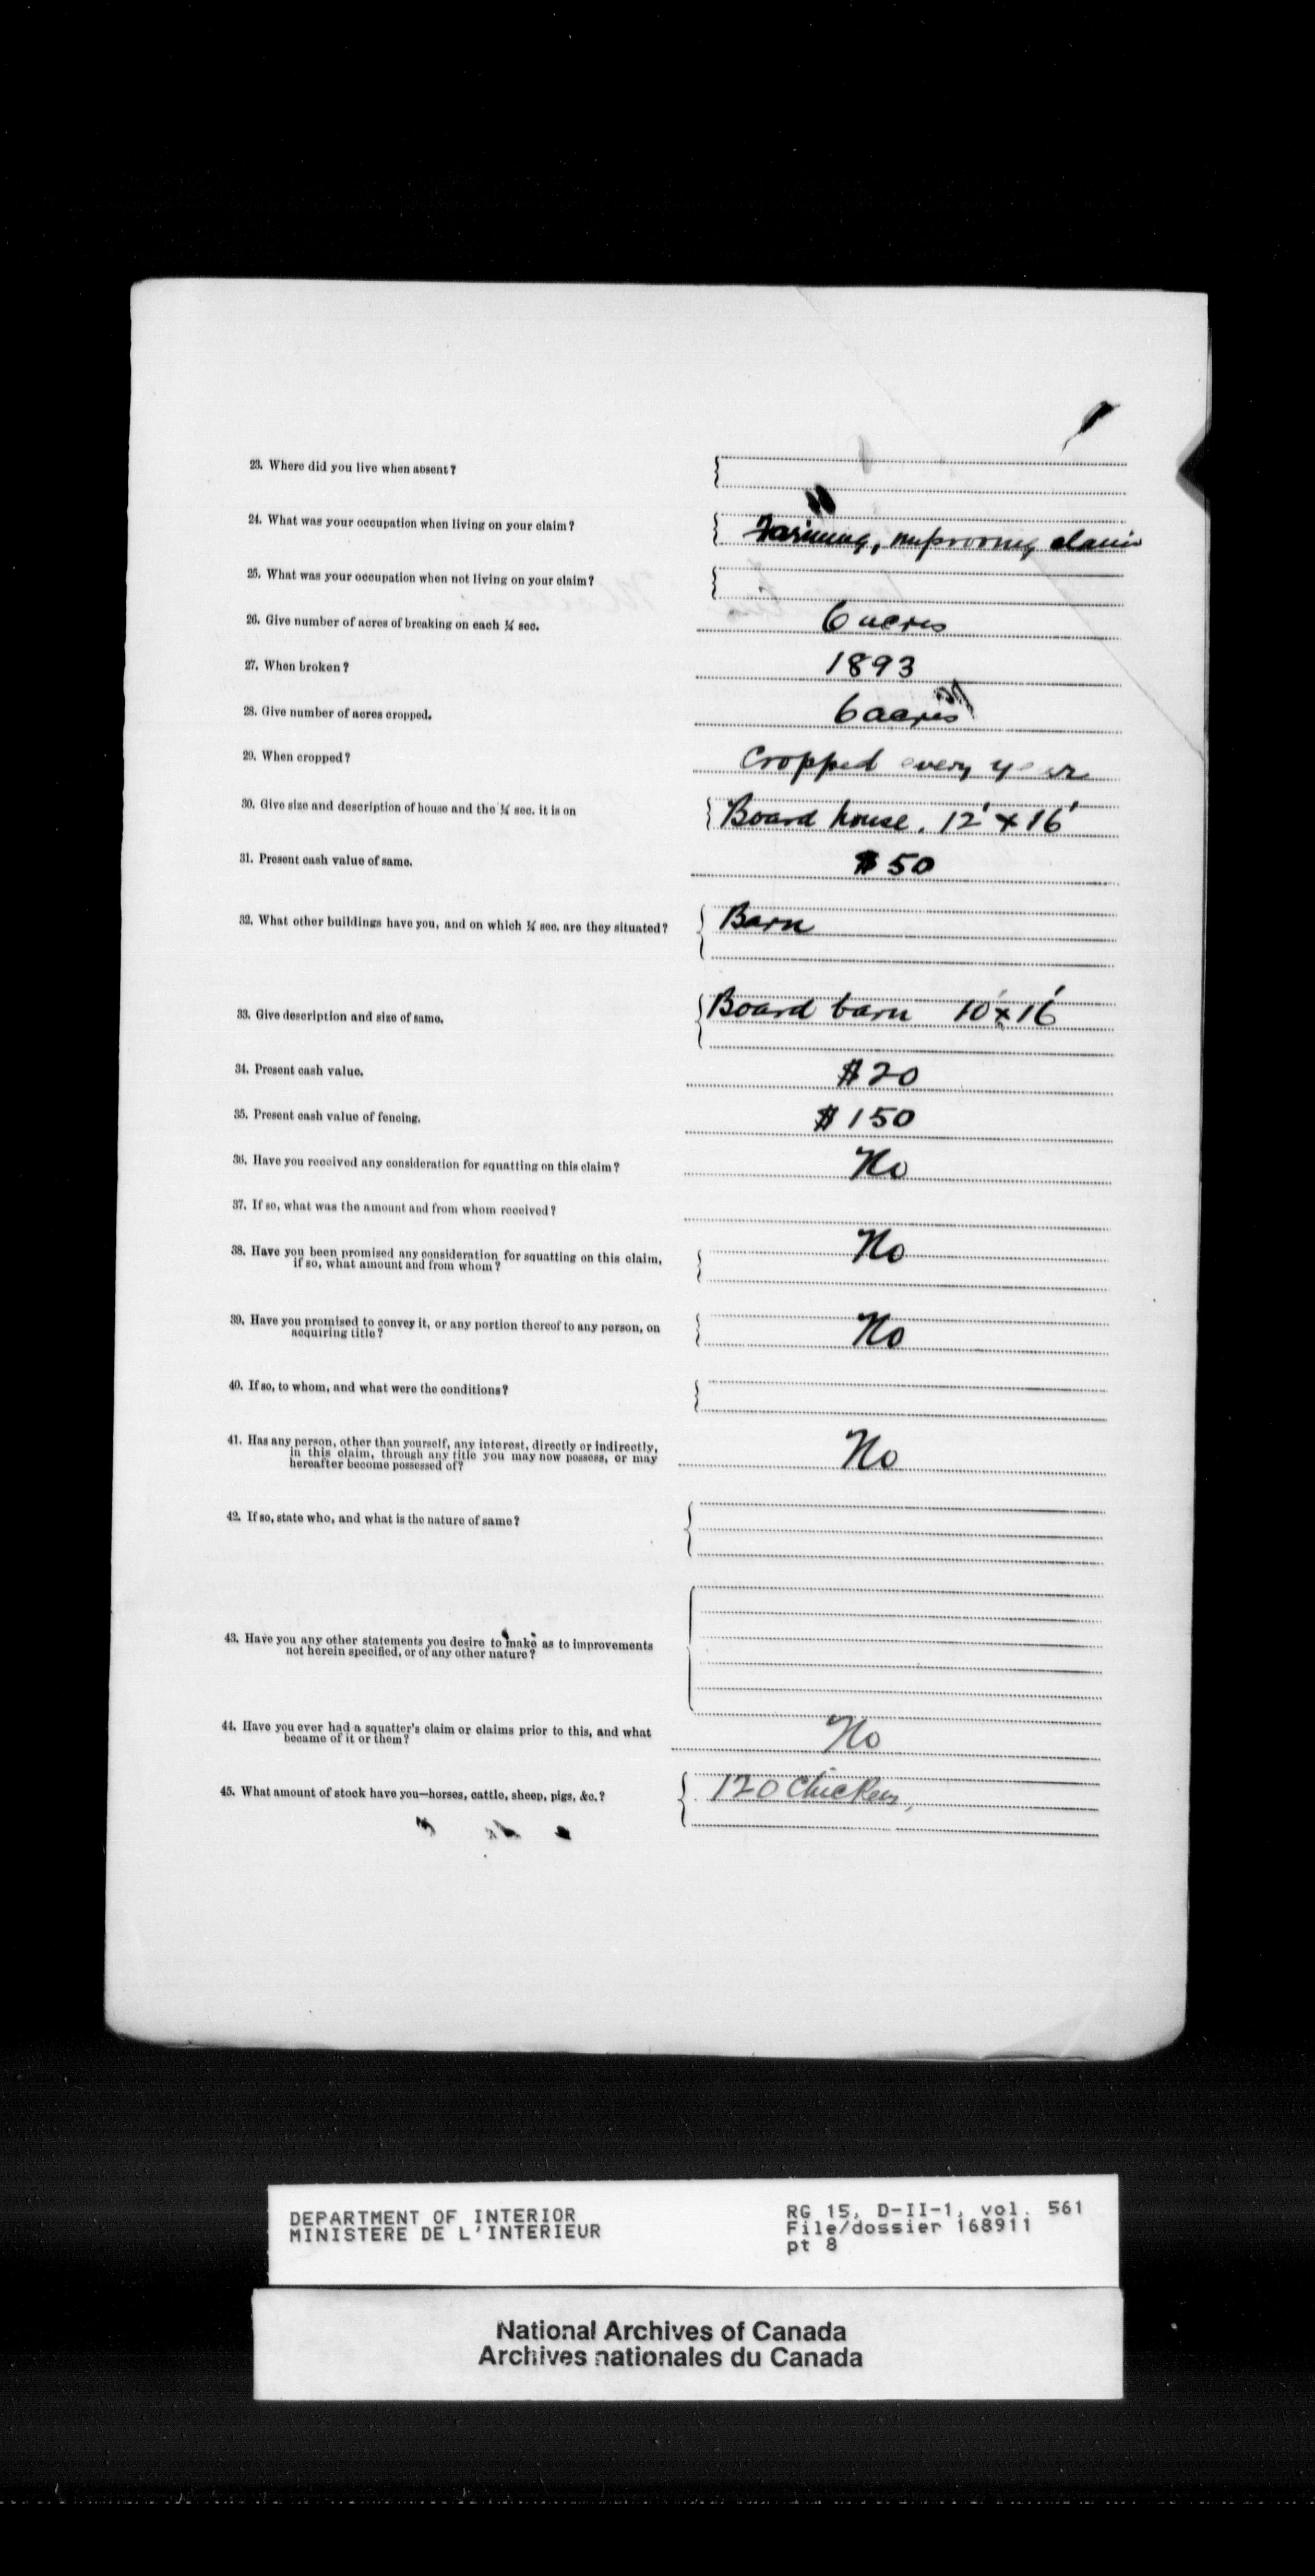 23. Where did you live when absent?
24. What was your occupation when living on your claim?
Farming, improving claim
25. What was your occupation when not living on your claim?
26. Give number of acres of breaking on each ¼ sec.
6 acres
27. When broken?
1893
28. Give number of acres cropped.
6 acres
29. When cropped?
Cropped every year
30. Give size and description of house and the ¼ sec. it is on
Board house. 12' x 16'
31. Present cash value of same.
$50
32. What other buildings have you, and on which ¼ sec. are they situated?
Barn
33. Give description and size of same.
Board barn 10' x 16'
34. Present cash value.
$20
35. Present cash value of fencing.
$150
36. Have you received any consideration for squatting on this claim?
No
37. If so, what was the amount and from whom received?
38. Have you been promised any consideration for squatting on this claim,
if so, what amount and from whom?
No
39. Have you promised to convey it, or any portion thereof to any person, on
acquiring title?
No
40. If so, to whom, and what were the conditions?
41. Has any person, other than yourself, any interest, directly or indirectly,
in this claim, through any title you may now possess, or may
hereafter become possessed of?
No
42. If so, state who, and what is the nature of same?
43. Have you any other statements you desire to make as to improvements
not herein specified, or of any other nature?
44. Have you ever had a squatter's claim or claims prior to this, and what
became of it or them?
No
45. What amount of stock have you—horses, cattle, sheep, pigs, &c.?
120 Chickens,
DEPARTMENT OF INTERIOR
MINISTERE DE L'INTERIEUR
RG 15, D-II-1, vol. 561
File/dossier 168911
pt 8
National Archives of Canada
Archives nationales du Canada